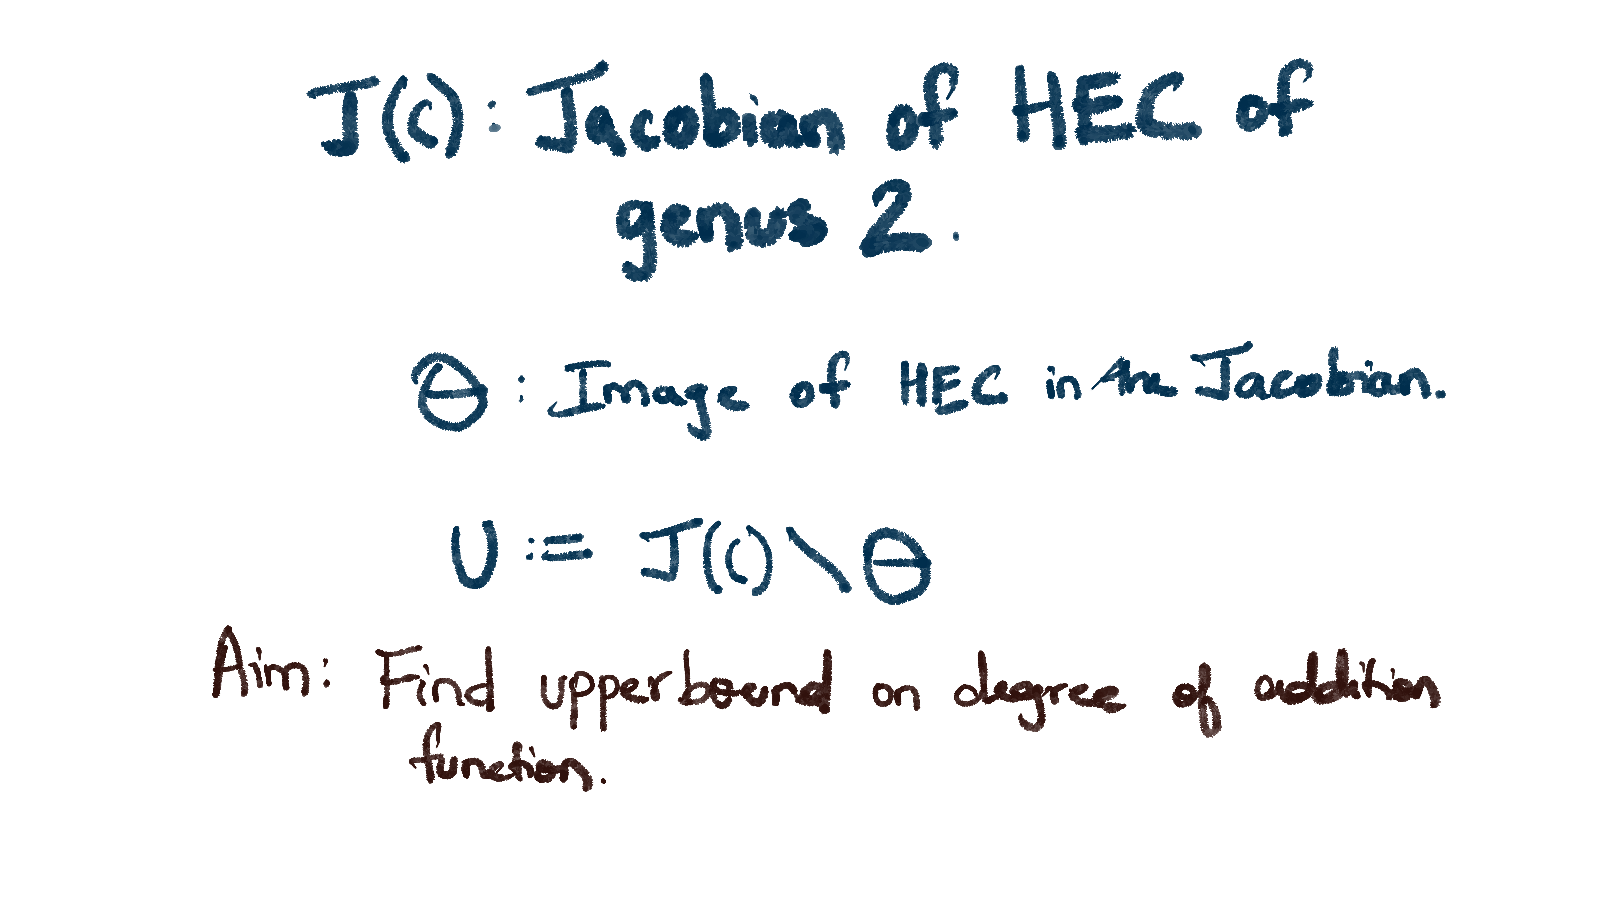 J(C): Jacobian of HEC of
genus 2.
Θ: Image of HEC in the Jacobian.
U := J(C) \ Θ
Aim: Find upper bound on degree of addition
function.